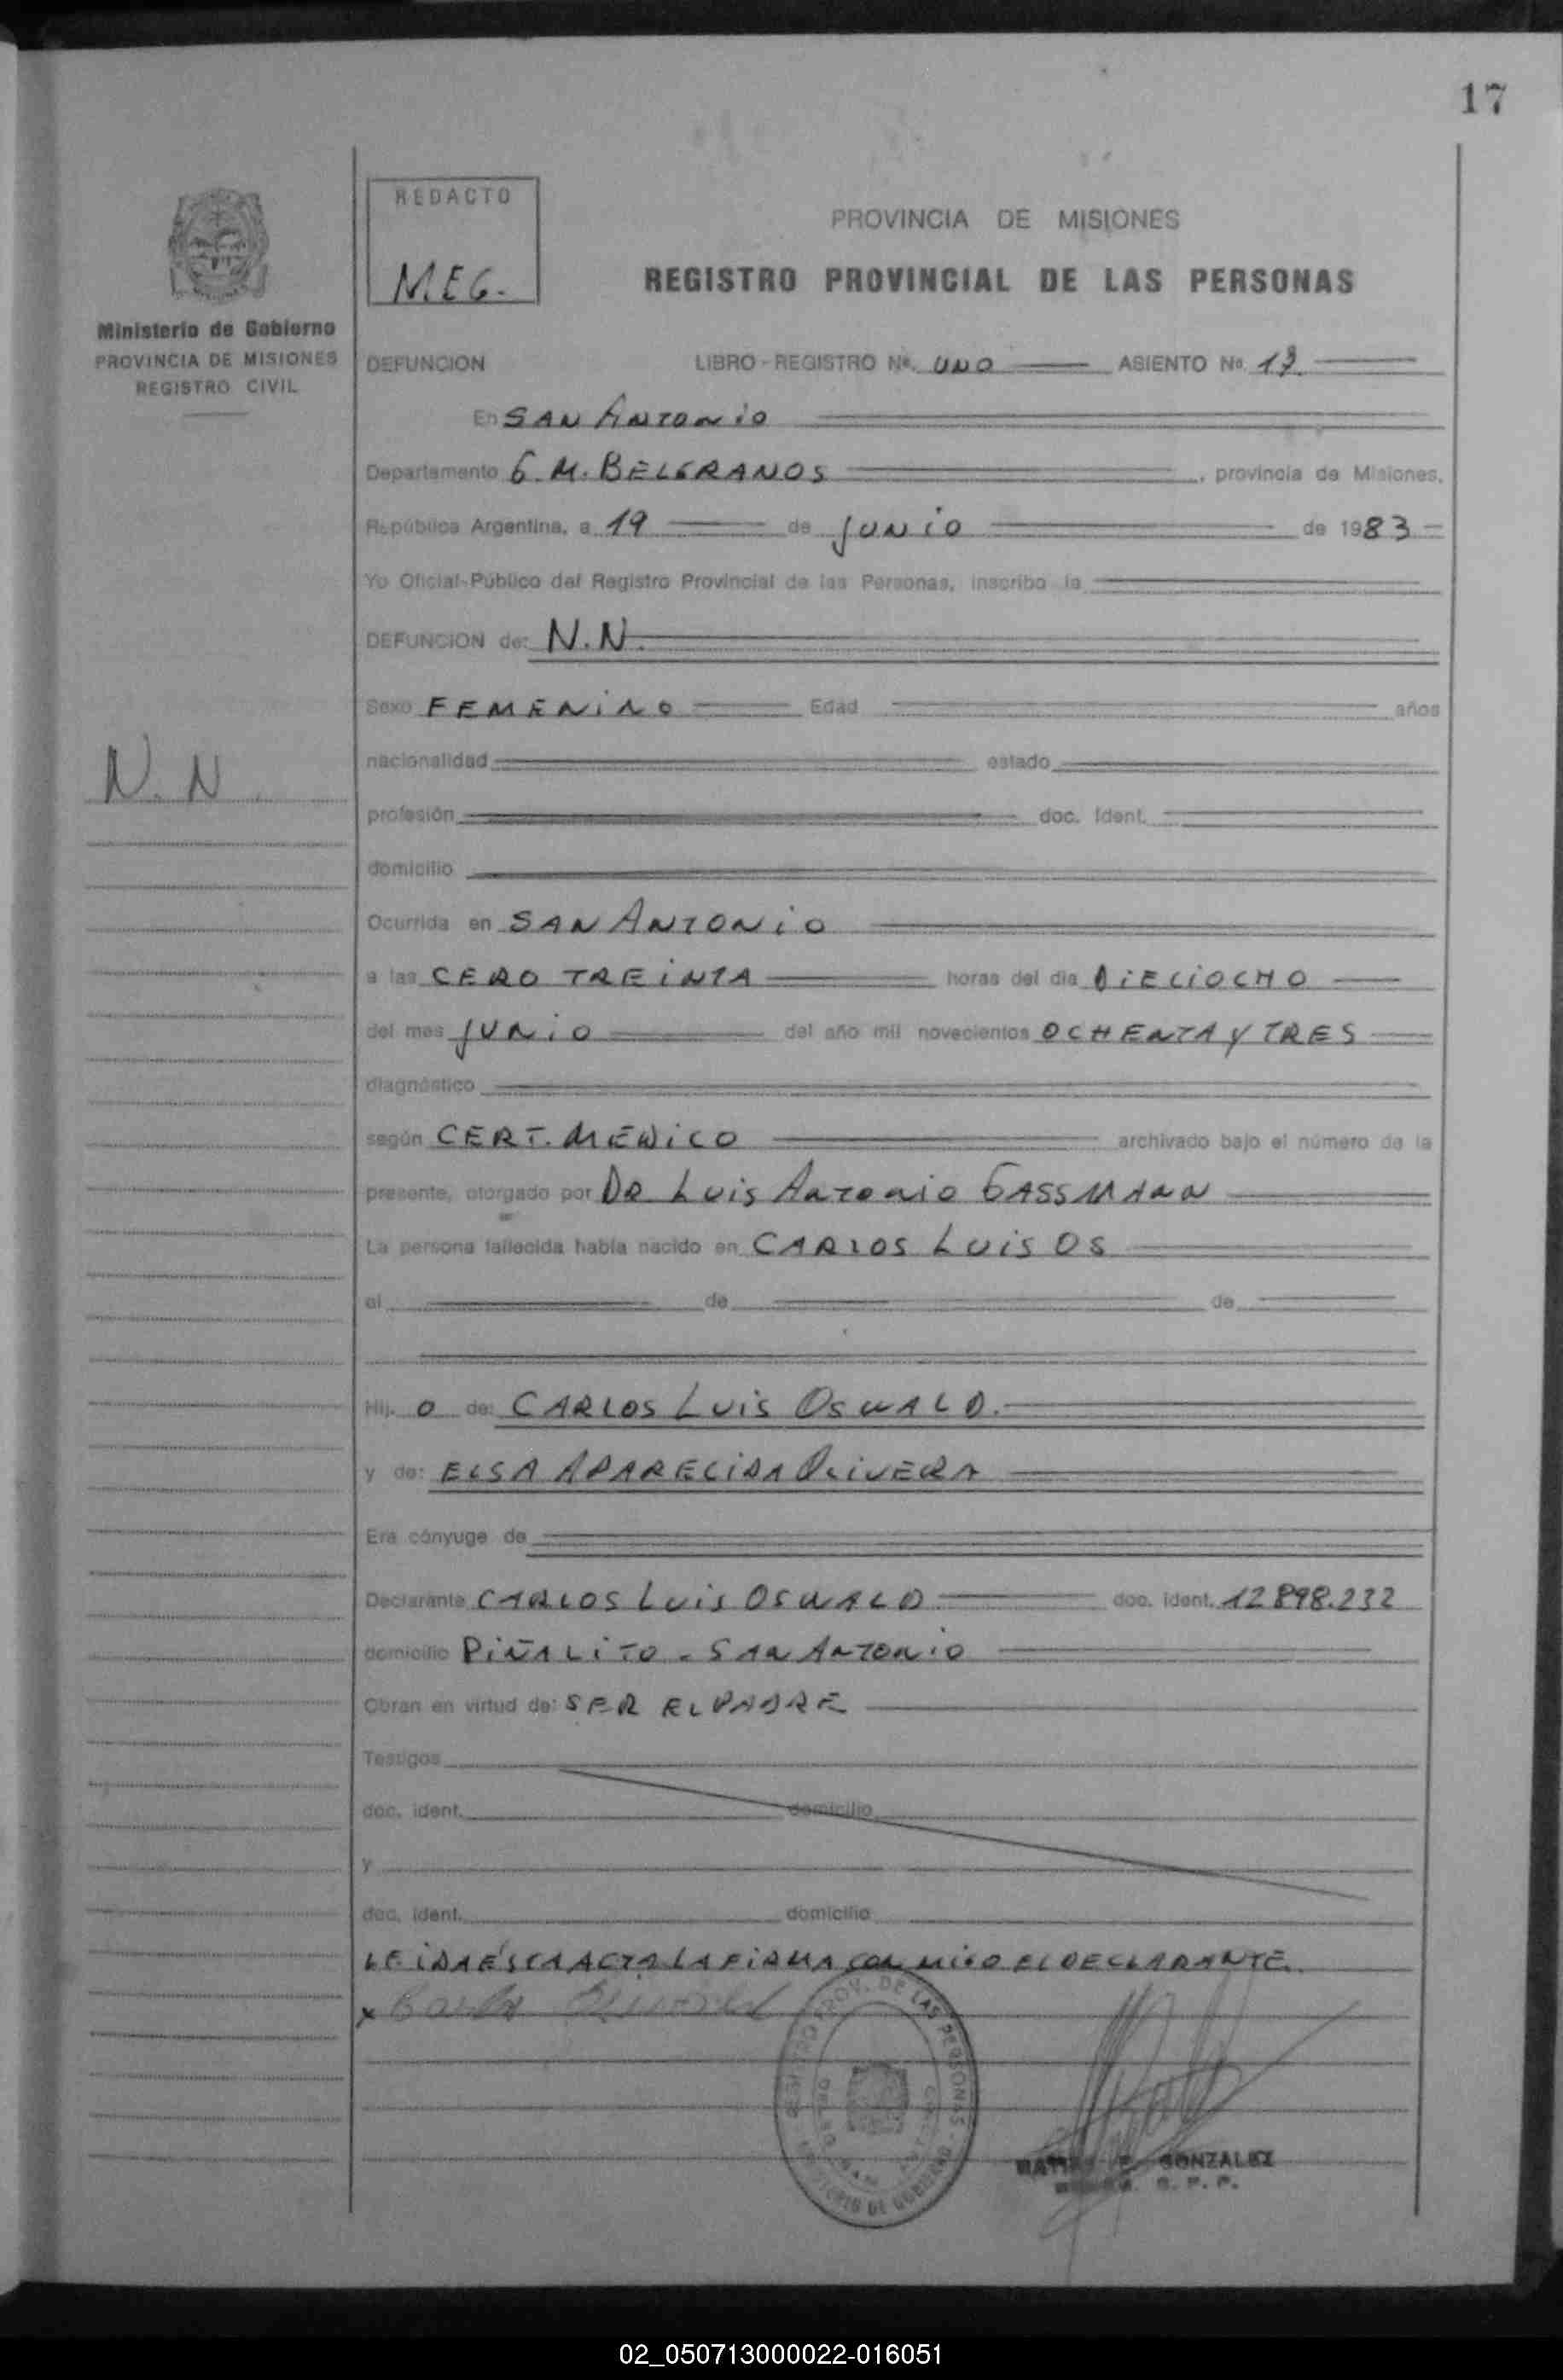 17
REDACTO
M.E.G.
PROVINCIA DE MISIONES
REGISTRO PROVINCIAL DE LAS PERSONAS
Ministerio de Gobierno
PROVINCIA DE MISIONES
REGISTRO CIVIL
DEFUNCION LIBRO - REGISTRO Nº. UNO ASIENTO Nº. 17
En SAN ANTONIO
Departamento G. M. BELGRANOS, provincia de Misiones,
República Argentina, a 19 de JUNIO de 1983
Yo Oficial-Público del Registro Provincial de las Personas, inscribo la
DEFUNCION de: N.N.
Sexo FEMENINO Edad años
nacionalidad estado
N. N.
profesión doc. ident.
domicilio
Ocurrida en SAN ANTONIO
a las CERO TREINTA horas del día DIECIOCHO
del mes JUNIO del año mil novecientos OCHENTA Y TRES
diagnóstico
según CERT. MEDICO archivado bajo el número de la
presente, otorgado por DR LUIS ANTONIO GASSMANN
La persona fallecida había nacido en CARLOS LUIS OS
el de de
Hij. O de: CARLOS LUIS OSWALD.
y de: ELSA APARECIDA OLIVERA
Era cónyuge de
Declarante CARLOS LUIS OSWALD doc. ident. 12.898.232
domicilio PIÑALITO - SAN ANTONIO
Obran en virtud de: SER EL PADRE
Testigos
doc. ident. domicilio
y
doc. ident. domicilio
LEIDA ESTA ACTA LA FIRMA CONMIGO EL DECLARANTE.
x
REGISTRO PROV. DE LAS PERSONAS
MINISTERIO DE GOBIERNO
GONZALEZ
02_050713000022-016051